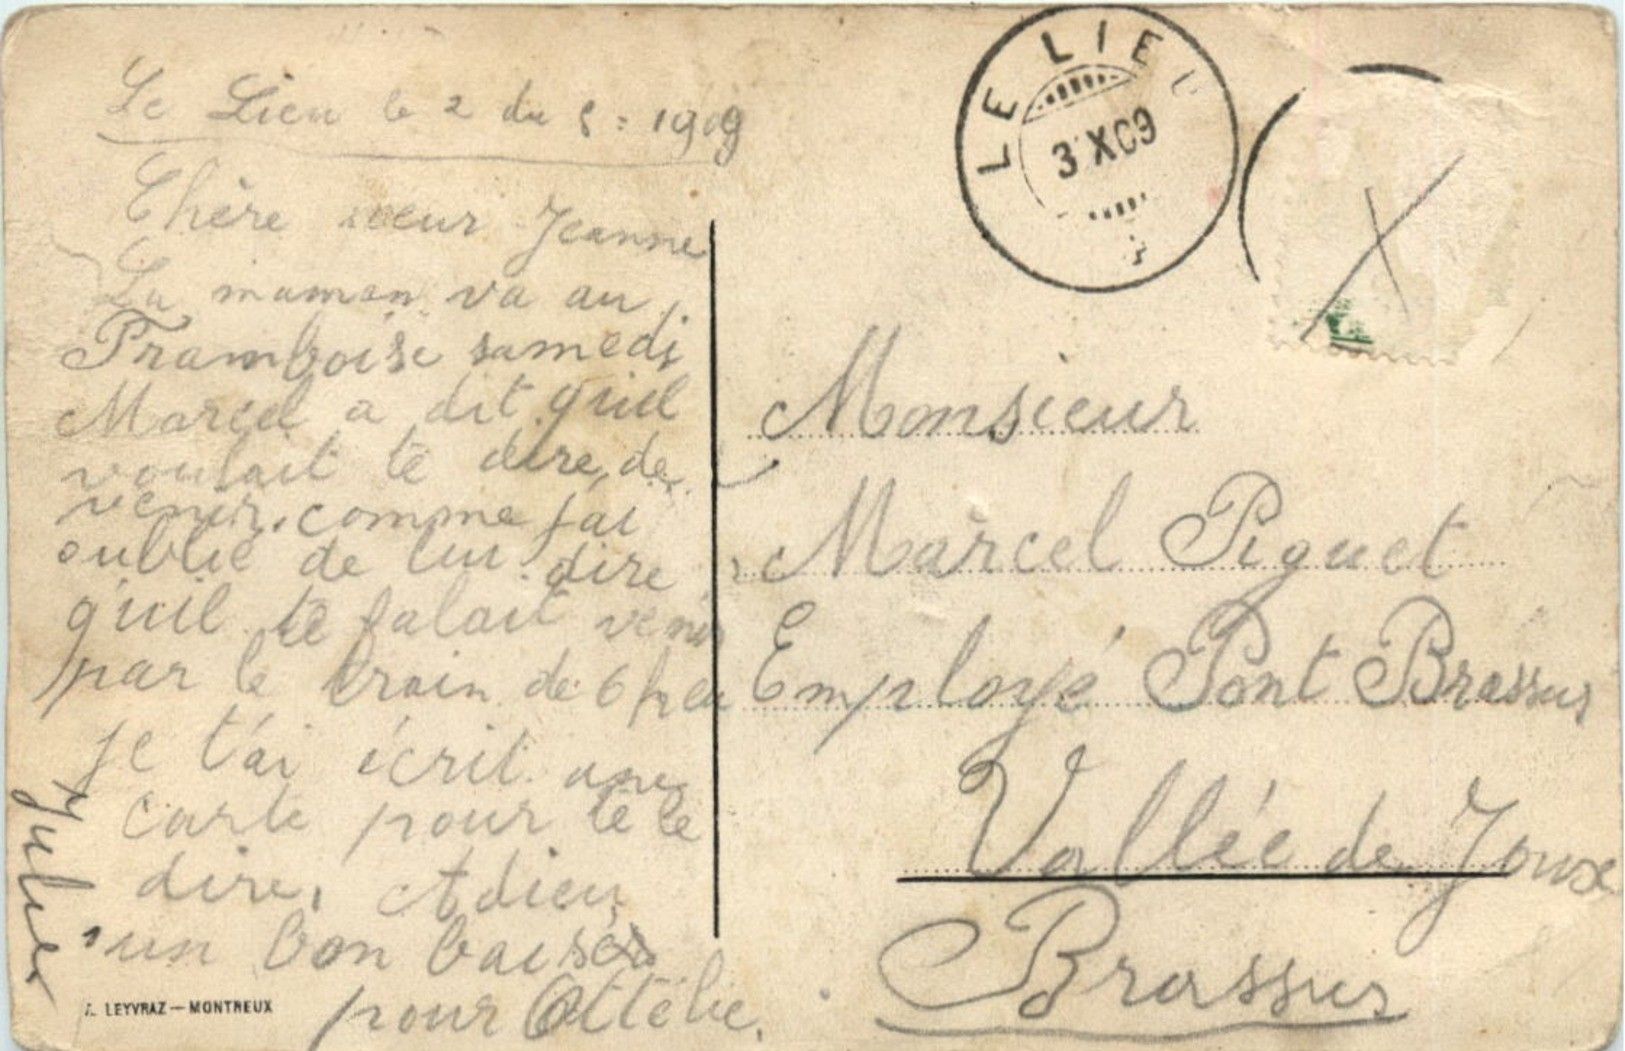 Le Lieu le 2 du 5 = 1909
Chère sœur Jeanne
La maman va au
Framboise samedi
Marcel a dit qu'il
voulait te dire, de
venir. comme j'ai
oublié de lui dire
qu'il te falait venir
par le train de 6 heu
je t'ai écrit une
carte pour te le
dire, Adieu
un bon baiser
pour Ottélie.
Julier
A. LEYVRAZ — MONTREUX
LE LIEU
3 X 09
Monsieur
Marcel Piguet
Employé Pont Brassus
Vallée de Joux
Brassus